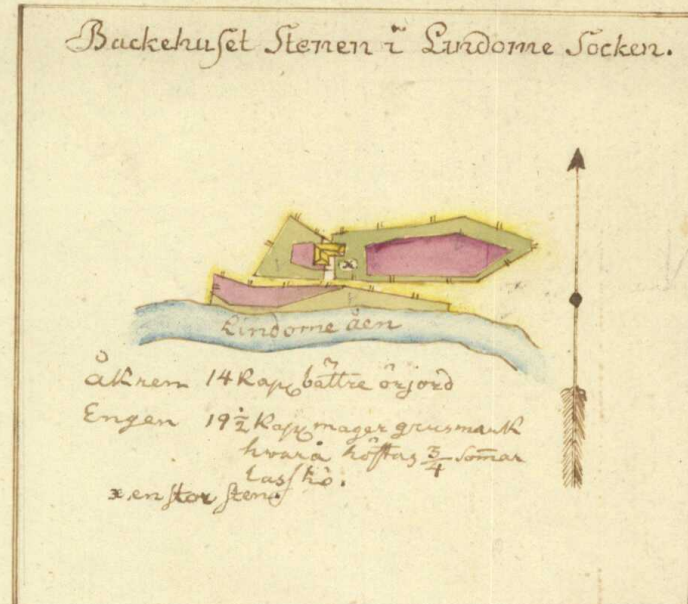 Backehuset Stenen i Lindome Socken.
Lindome åen
Åkren 14 Kapp bättre örjord
Engen 19½ Kapp mager grusmark
hvarå höstas ¾ somar
lass hö.
x en stor sten.